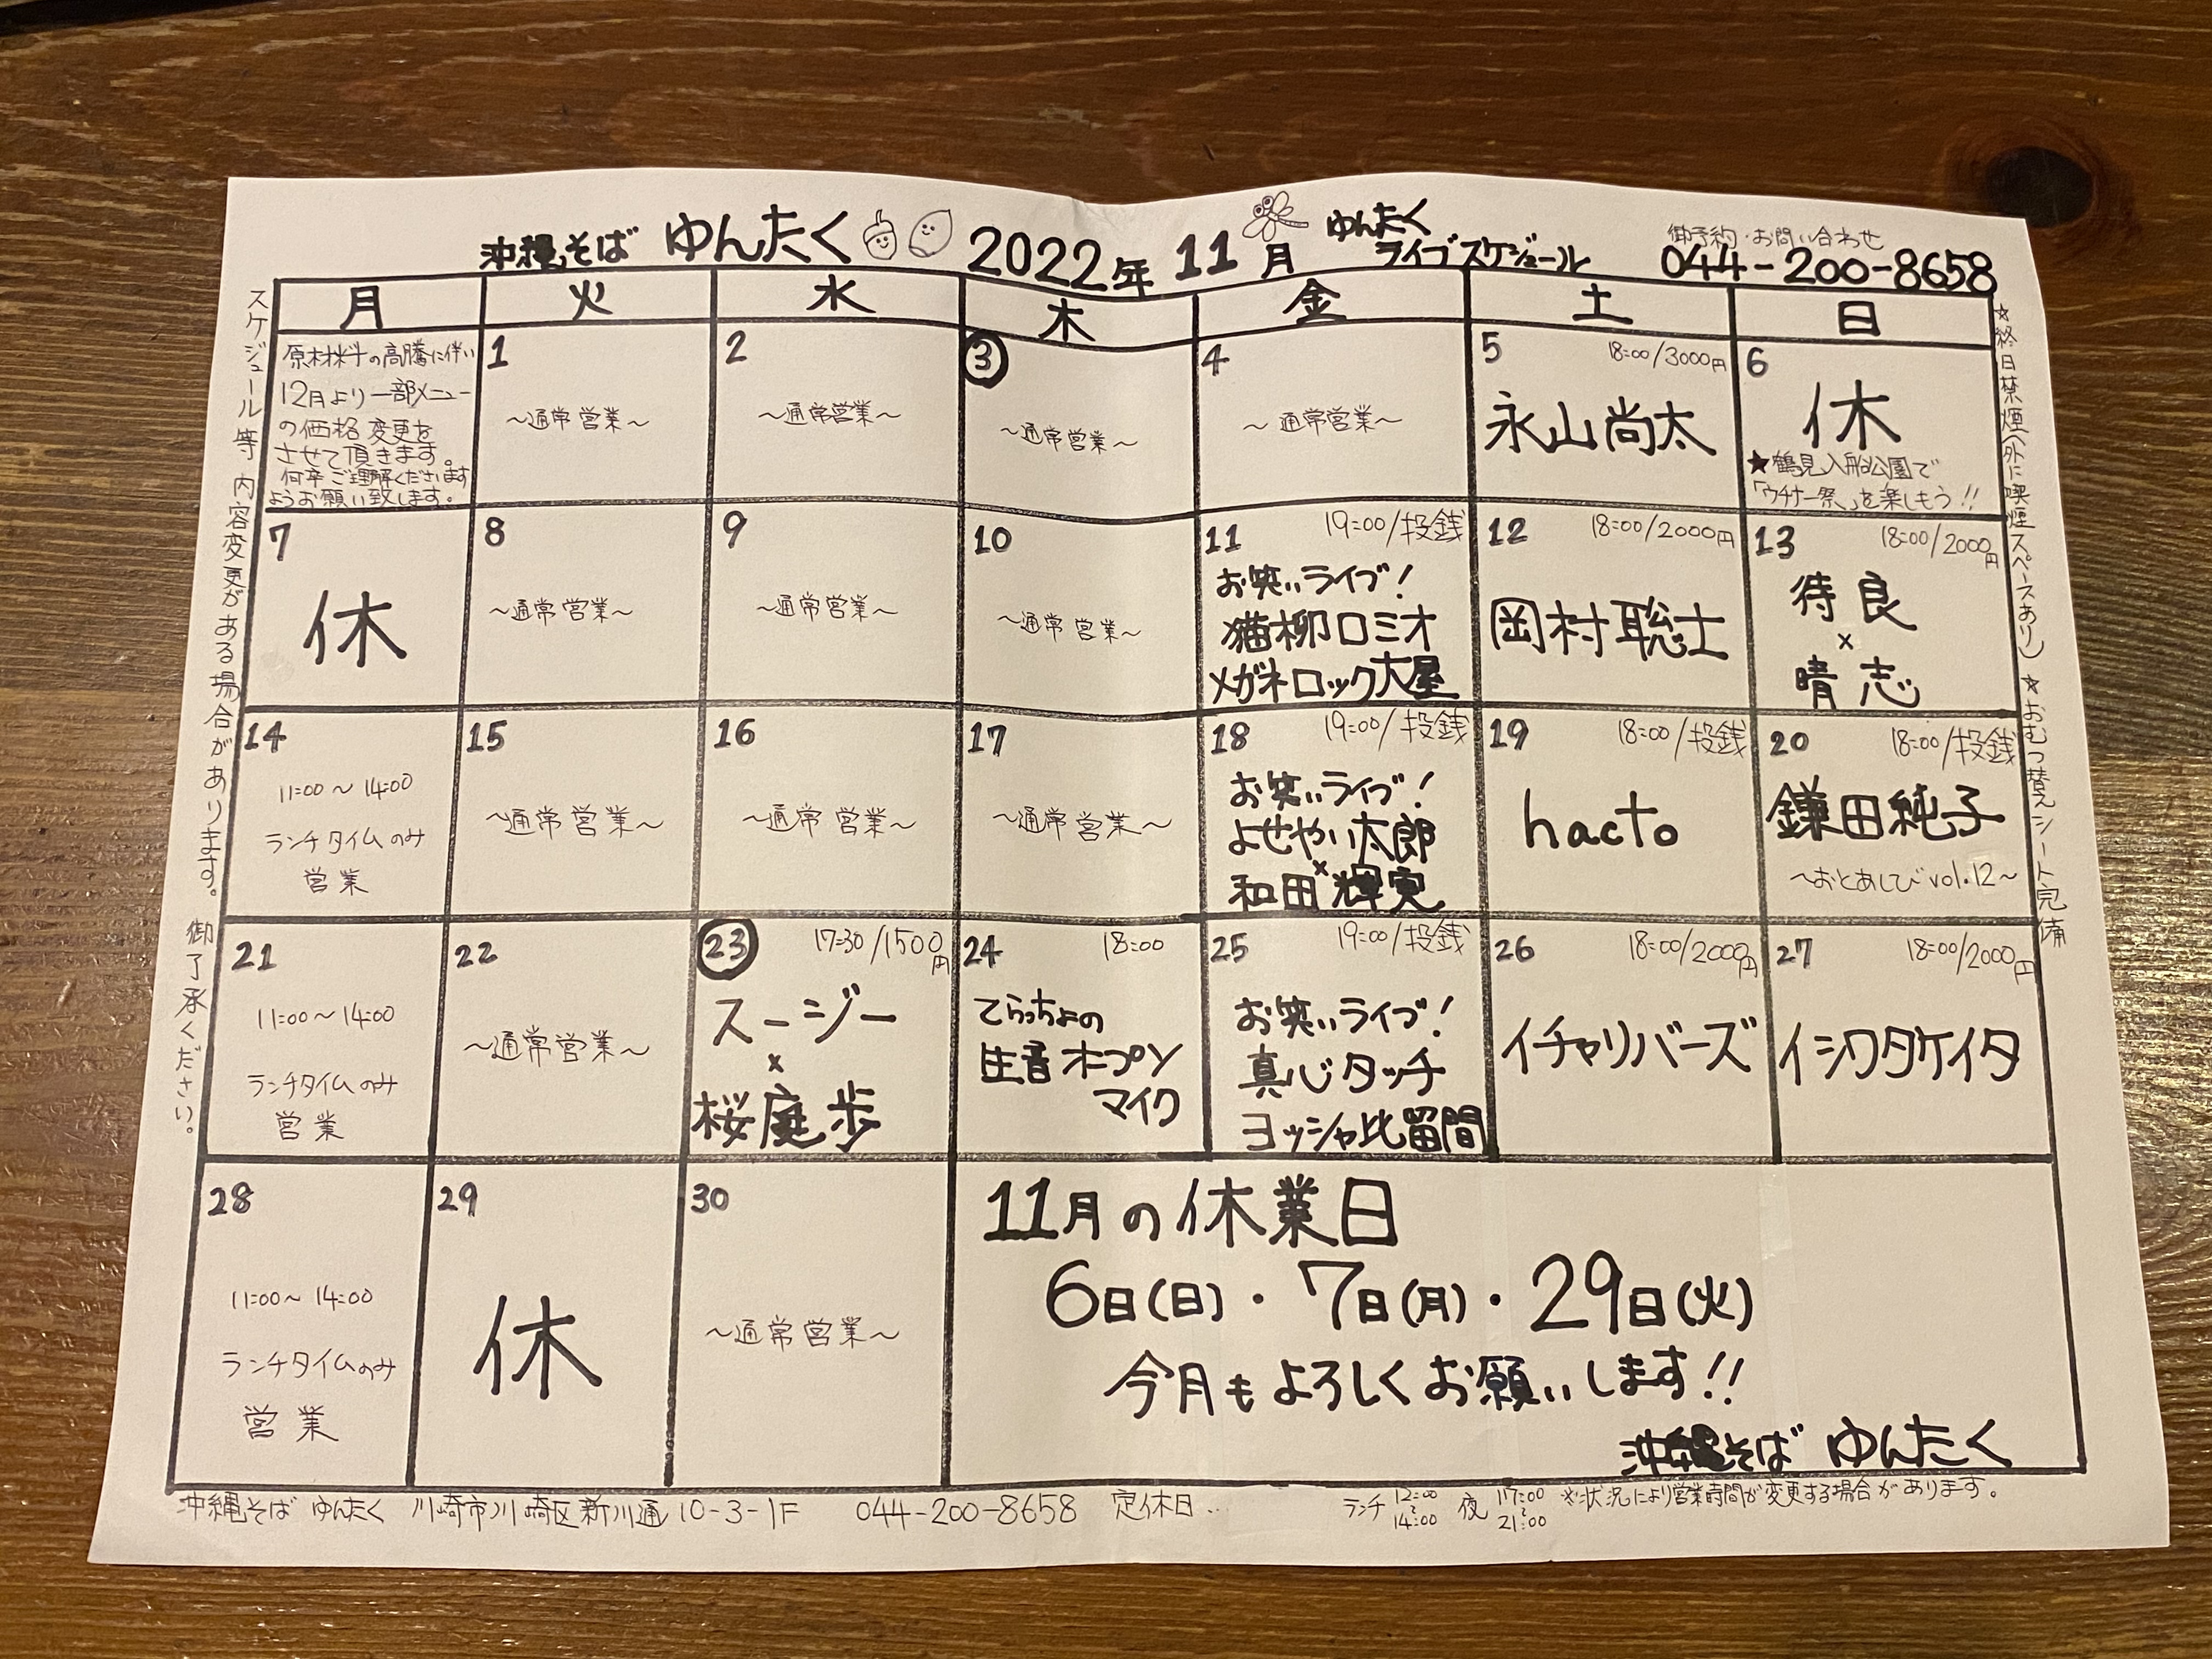 沖縄そば ゆんたく 2022年 11月 ゆんたく
ライブスケジュール
御予約・お問い合わせ
044-200-8658
月 火 水 木 金 土 日
原材料の高騰に伴い
12月より一部メニュー
の価格変更を
させて頂きます。
何卒ご理解くださいます
ようお願い致します。
1
~通常営業~
2
~通常営業~
3
~通常営業~
4
~通常営業~
5 18:00/3000円
永山尚太
6
休
★鶴見入船公園で
「ウチナー祭」を楽しもう!!
7
休
8
~通常営業~
9
~通常営業~
10
~通常営業~
11 19:00/投銭
お笑いライブ!
猫柳ロミオ
メガネロック大屋
12 18:00/2000円
岡村聡士
13 18:00/2000円
待良
×
晴志
14
11:00~14:00
ランチタイムのみ
営業
15
~通常営業~
16
~通常営業~
17
~通常営業~
18 19:00/投銭
お笑いライブ!
よせやい太郎
×
和田輝実
19 18:00/投銭
hacto
20 18:00/投銭
鎌田純子
~おとあしび vol.12~
21
11:00~14:00
ランチタイムのみ
営業
22
~通常営業~
23 17:30/1500円
スージー
×
桜庭歩
24 18:00
てらっちょの
生音オープン
マイク
25 19:00/投銭
お笑いライブ!
真心タッチ
ヨッシャ比留間
26 18:00/2000円
イチャリバーズ
27 18:00/2000円
イシワタケイタ
28
11:00~14:00
ランチタイムのみ
営業
29
休
30
~通常営業~
11月の休業日
6日(日)・7日(月)・29日(火)
今月もよろしくお願いします!!
沖縄そば ゆんたく
スケジュール等 内容変更がある場合があります。 御了承ください。
☆終日禁煙(外に喫煙スペースあり) ☆おむつ替えシート完備
沖縄そば ゆんたく 川崎市川崎区新川通10-3-1F 044-200-8658 定休日… ランチ 12:00~14:00 夜 17:00~21:00 ※状況により営業時間が変更する場合があります。